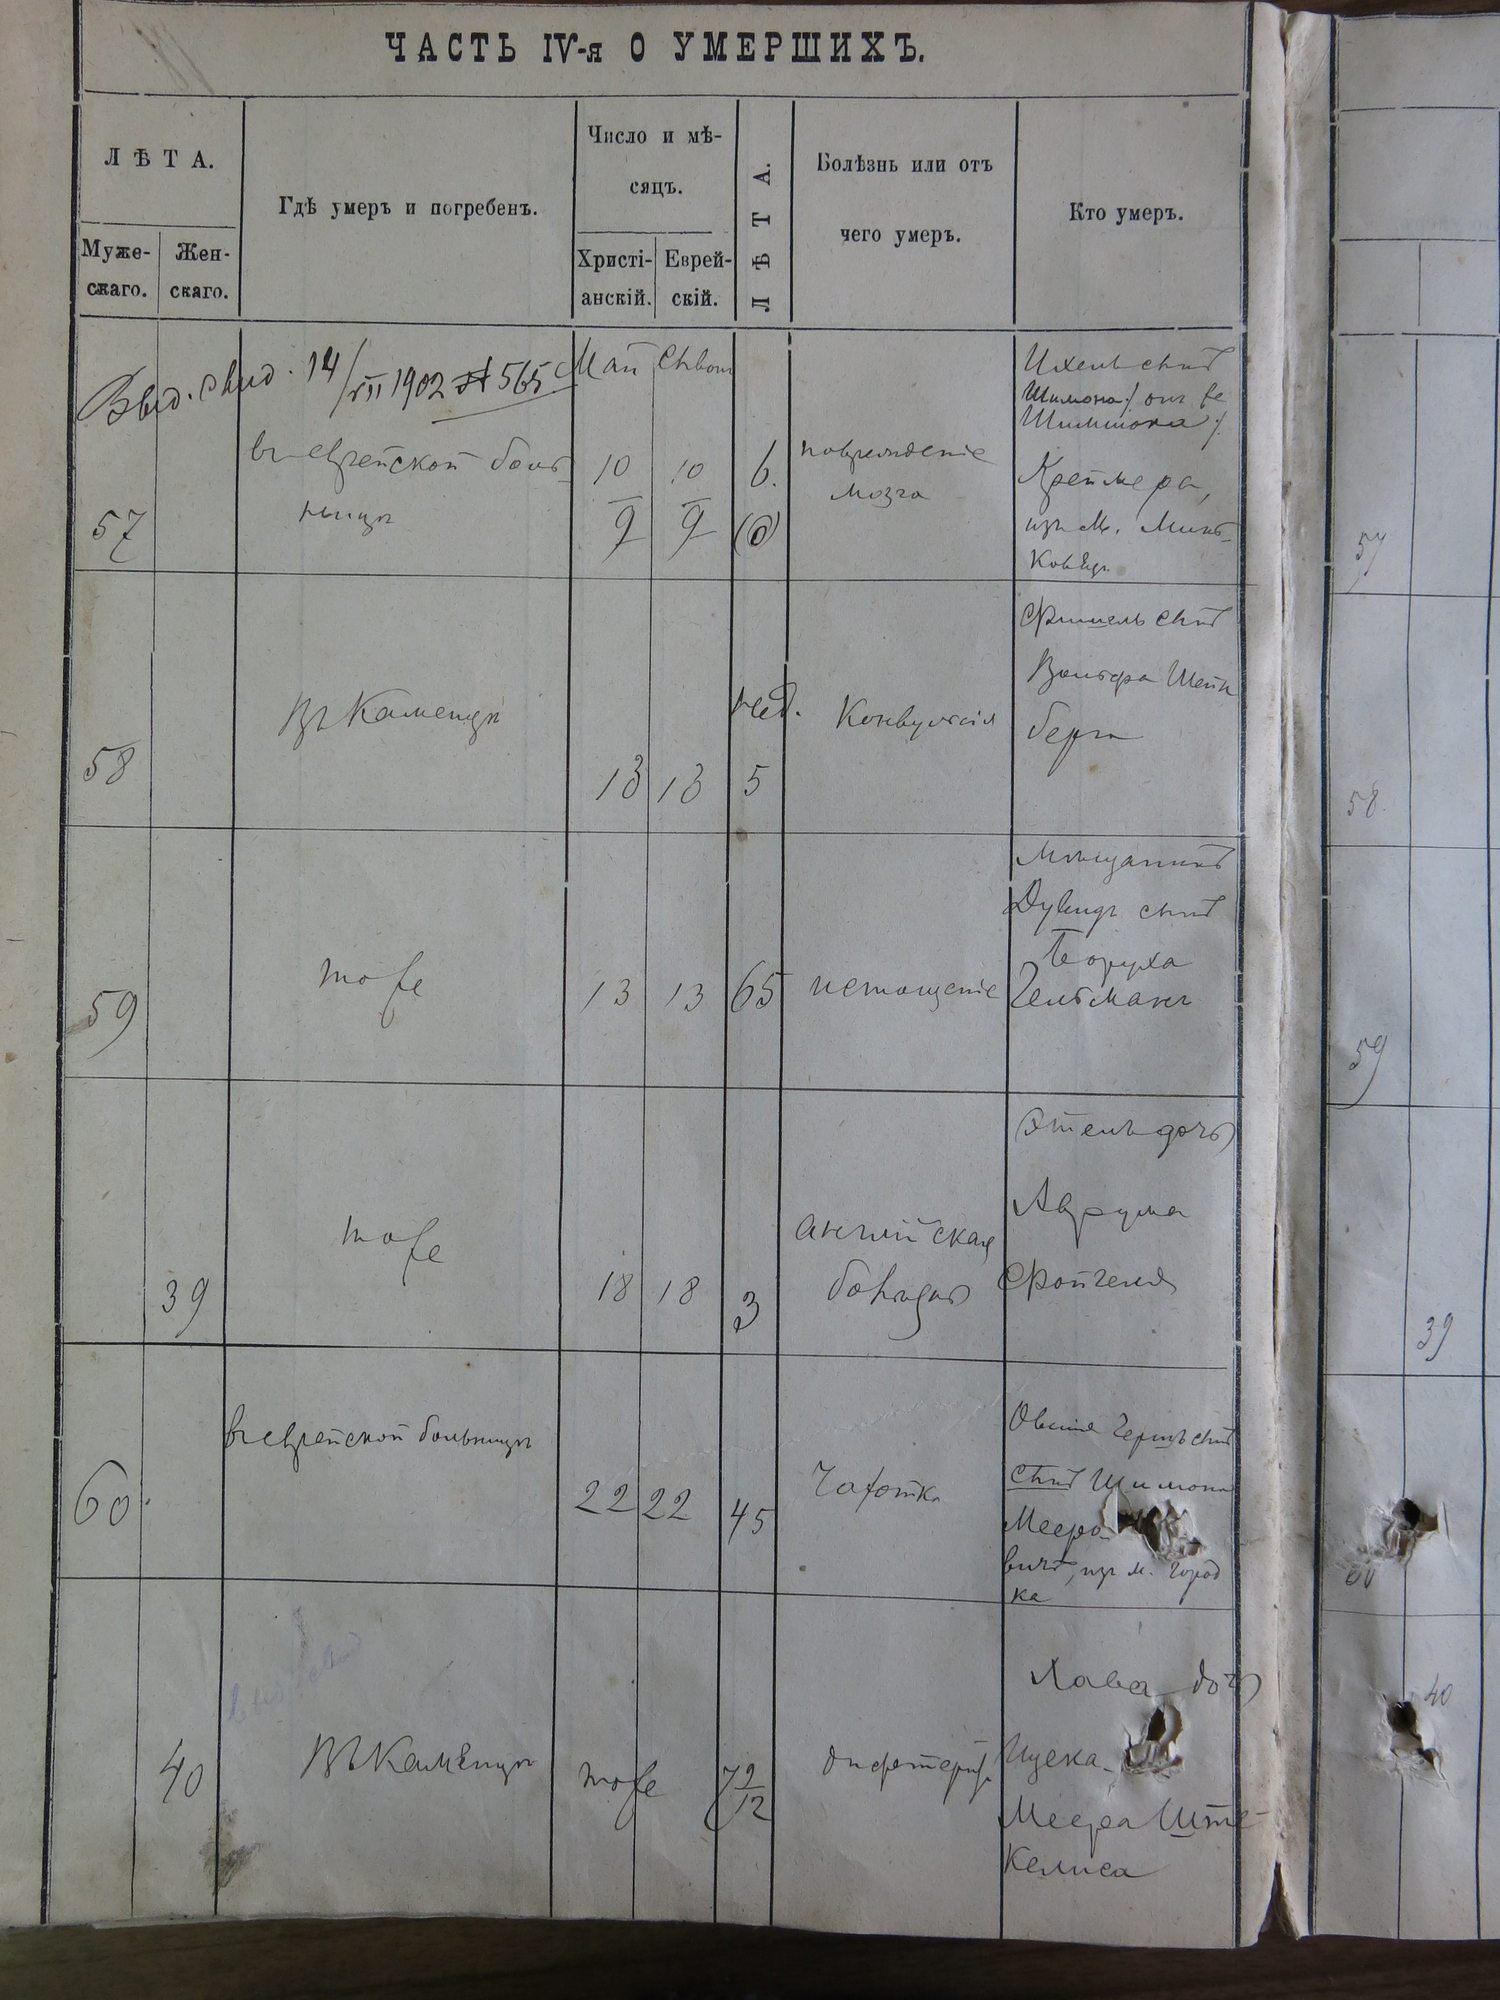 ЧАСТЬ IV-я О УМЕРШИХЪ.
ЛѢТА.
Муже-
скаго.
Жен-
скаго.
Гдѣ умеръ и погребенъ.
Число и мѣ-
сяцъ.
Христі-
анскій.
Еврей-
скій.
ЛѢТА.
Болѣзнь или отъ
чего умеръ.
Кто умеръ.
Выд. свид. 14/VII 1902 № 565
Май
57
въ еврейской боль-
ницѣ
10
10
9
9
6.
поврежденіе
мозга
Ихель сынъ
Шимона /: онъ же
Шимшона :/
Креймера,
изъ м. Минь-
ковецъ
57
58
Въ Каменцѣ
13
13
нед.
5
Конвульсія
Фишель сынъ
Вольфа Штейн
берга
58.
59
тоже
13
13
65
истощеніе
Мѣщанинъ
Дувидъ сынъ
Боруха
Гельманъ
59
39
тоже
18
18
3
англійская
болѣзнь
Этель дочь
Аврума
Фойгеля
39
60.
въ еврейской больницѣ
22
22
45
Чахотка
Овшія Гершъ сынъ
сынъ Шимона
Мееро-
вичъ, изъ м. Город
ка
60
40
Въ Каменцѣ
тоже
7 9/12
дифтеритъ
Хава дочь
Ицека-
Меера Ште-
келиса
40